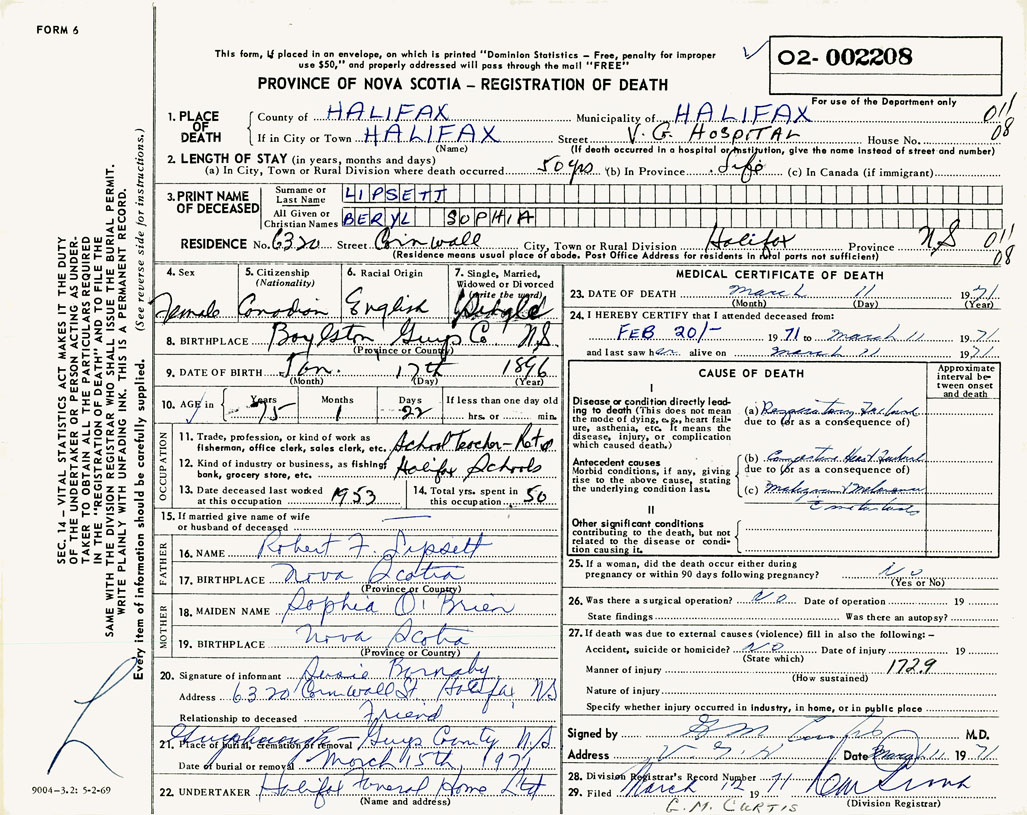 FORM 6
This form, if placed in an envelope, on which is printed "Dominion Statistics – Free, penalty for improper
use $50," and properly addressed will pass through the mail "FREE"
02-002208
For use of the Department only
PROVINCE OF NOVA SCOTIA – REGISTRATION OF DEATH
011
08
1. PLACE OF DEATH
County of HALIFAX Municipality of HALIFAX
If in City or Town HALIFAX Street V. G. HOSPITAL House No.
(Name) (If death occurred in a hospital or institution, give the name instead of street and number)
2. LENGTH OF STAY (in years, months and days)
(a) In City, Town or Rural Division where death occurred 50 yrs (b) In Province Life (c) In Canada (if immigrant)
3. PRINT NAME OF DECEASED
Surname or Last Name LIPSETT
All Given or Christian Names BERYL SOPHIA
RESIDENCE No. 6320 Street Cornwall City, Town or Rural Division Halifax Province N.S 011
08
(Residence means usual place of abode. Post Office Address for residents in rural parts not sufficient)
4. Sex Female
5. Citizenship (Nationality) Canadian
6. Racial Origin English
7. Single, Married, Widowed or Divorced (write the word) Single
8. BIRTHPLACE Boylston Guys Co. N.S.
(Province or Country)
9. DATE OF BIRTH Jan. 17th 1896
(Month) (Day) (Year)
10. AGE in Years 75 Months 1 Days 22 If less than one day old
hrs. or min.
OCCUPATION
11. Trade, profession, or kind of work as
fisherman, office clerk, sales clerk, etc. School Teacher –
12. Kind of industry or business, as fishing,
bank, grocery store, etc. Halifax Schools
13. Date deceased last worked
at this occupation 1953
14. Total yrs. spent in
this occupation 50
15. If married give name of wife
or husband of deceased —
FATHER
16. NAME Robert F. Lipsett
17. BIRTHPLACE Nova Scotia
(Province or Country)
MOTHER
18. MAIDEN NAME Sophia O'Brien
19. BIRTHPLACE Nova Scotia
(Province or Country)
20. Signature of informant Barnaby
Address 6320 Cornwall St. Halifax, NS
Relationship to deceased Friend
21. Place of burial, cremation or removal Guysborough – Guys County N.S
Date of burial or removal March 15th, 1971
22. UNDERTAKER Halifax Funeral Home Ltd
(Name and address)
MEDICAL CERTIFICATE OF DEATH
23. DATE OF DEATH March 11 1971
(Month) (Day) (Year)
24. I HEREBY CERTIFY that I attended deceased from:
FEB 20/- 1971 to March 11 1971
and last saw her alive on March 11 1971
CAUSE OF DEATH
Approximate interval between onset and death
I
Disease or condition directly leading to death (This does not
mean the mode of dying, e.g., heart failure, asthenia, etc. It means the
disease, injury, or complication
which caused death.)
(a) Respiratory Failure
due to (or as a consequence of)
Antecedent causes
Morbid conditions, if any, giving
rise to the above cause, stating
the underlying condition last.
(b) Congestive Heart Failure
due to (or as a consequence of)
(c) Malignant Melanoma
metastases
II
Other significant conditions
contributing to the death, but not
related to the disease or condition
causing it.
25. If a woman, did the death occur either during
pregnancy or within 90 days following pregnancy? No
(Yes or No)
26. Was there a surgical operation? No Date of operation 19
State findings Was there an autopsy?
27. If death was due to external causes (violence) fill in also the following: –
Accident, suicide or homicide? No Date of injury 19
(State which)
Manner of injury 1729
(How sustained)
Nature of injury
Specify whether injury occurred in industry, in home, or in public place
Signed by M.D.
Address V.G.H Date Mar 11 1971
28. Division Registrar's Record Number
29. Filed March 12 1971
(Division Registrar)
G.M. CURTIS
SEC. 14 – VITAL STATISTICS ACT MAKES IT THE DUTY
OF THE UNDERTAKER OR PERSON ACTING AS UNDERTAKER
TO OBTAIN ALL THE PARTICULARS REQUIRED
IN THE "REGISTRATION OF DEATH" AND TO FILE THE
SAME WITH THE DIVISION REGISTRAR WHO SHALL ISSUE THE BURIAL PERMIT.
WRITE PLAINLY WITH UNFADING INK. THIS IS A PERMANENT RECORD.
Every item of information should be carefully supplied. (See reverse side for instructions.)
9004-3.2: 5-2-69